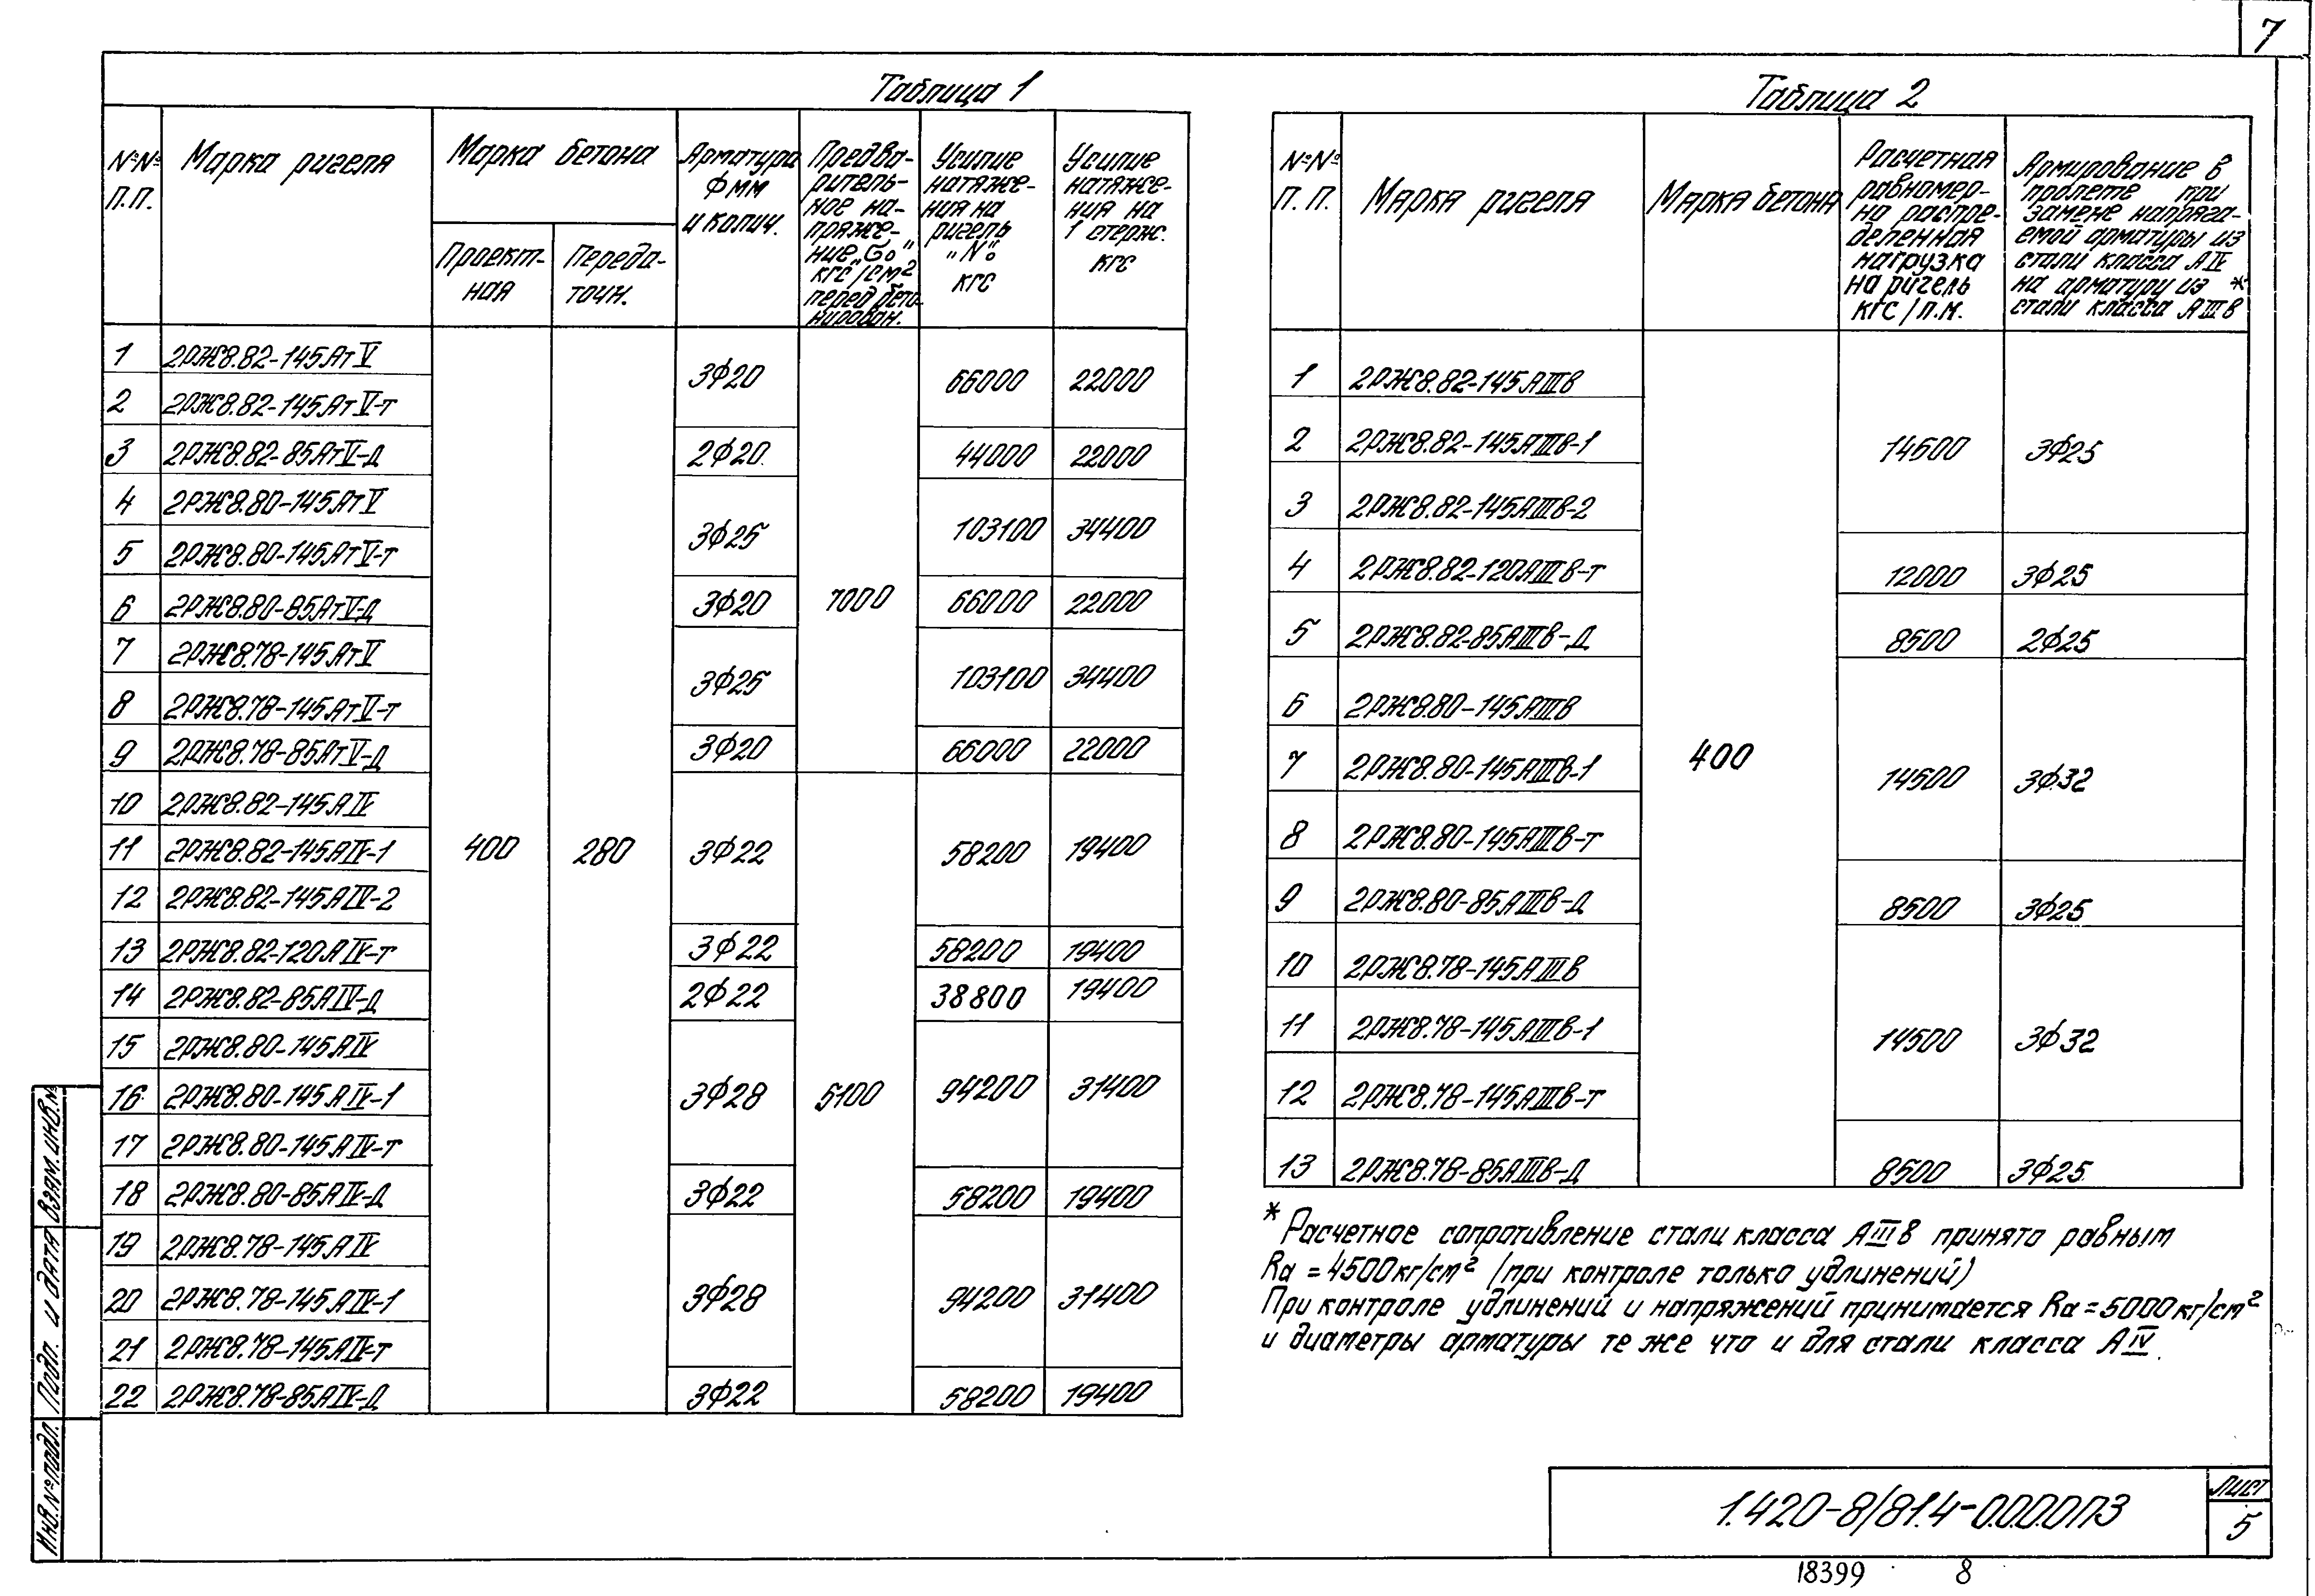 7
Таблица 1
№№ П.П.
Марка ригеля
Марка бетона
Проект-
ная
Переда-
точн.
Арматура
Ф мм
и колич.
Предва-
ритель-
ное на-
пряже-
ние „Gо"
кгс/см²
перед бето-
нирован.
Усилие
натяже-
ния на
ригель
„N"
кгс
Усилие
натяже-
ния на
1 стерж.
кгс
1 2РЖ8.82-145АтV 400 280 3Ф20 7000 66000 22000
2 2РЖ8.82-145АтV-т
3 2РЖ8.82-85АтV-д 2Ф20 44000 22000
4 2РЖ8.80-145АтV 3Ф25 103100 34400
5 2РЖ8.80-145АтV-т
6 2РЖ8.80-85АтV-д 3Ф20 66000 22000
7 2РЖ8.78-145АтV 3Ф25 103100 34400
8 2РЖ8.78-145АтV-т
9 2РЖ8.78-85АтV-д 3Ф20 66000 22000
10 2РЖ8.82-145АIV 3Ф22 5100 58200 19400
11 2РЖ8.82-145АIV-1
12 2РЖ8.82-145АIV-2
13 2РЖ8.82-120АIV-т 3Ф22 58200 19400
14 2РЖ8.82-85АIV-д 2Ф22 38800 19400
15 2РЖ8.80-145АIV 3Ф28 94200 31400
16 2РЖ8.80-145АIV-1
17 2РЖ8.80-145АIV-т
18 2РЖ8.80-85АIV-Д 3Ф22 58200 19400
19 2РЖ8.78-145АIV 3Ф28 94200 31400
20 2РЖ8.78-145АIV-1
21 2РЖ8.78-145АIV-т
22 2РЖ8.78-85АIV-Д 3Ф22 58200 19400
Таблица 2
№№ П.П.
Марка ригеля
Марка бетона
Расчетная
равномер-
но распре-
деленная
нагрузка
на ригель
кгс/п.м.
Армирование в
пролете при
замене напряга-
емой арматуры из
стали класса АIV
на арматуру из *
стали класса АIIIв
1 2РЖ8.82-145АIIIв 400 14500 3Ф25
2 2РЖ8.82-145АIIIв-1
3 2РЖ8.82-145АIIIв-2
4 2РЖ8.82-120АIIIв-т 12000 3Ф25
5 2РЖ8.82-85АIIIв-Д 8500 2Ф25
6 2РЖ8.80-145АIIIв 14500 3Ф32
7 2РЖ8.80-145АIIIв-1
8 2РЖ8.80-145АIIIв-т
9 2РЖ8.80-85АIIIв-д 8500 3Ф25
10 2РЖ8.78-145АIIIв 14500 3Ф32
11 2РЖ8.78-145АIIIв-1
12 2РЖ8.78-145АIIIв-т
13 2РЖ8.78-85АIIIв-Д 8500 3Ф25
* Расчетное сопротивление стали класса АIIIв принято равным
Rа = 4500кг/см² (при контроле только удлинений)
При контроле удлинений и напряжений принимается Rа = 5000кг/см²
и диаметры арматуры те же что и для стали класса АIV.
Инв.№подл. Подп. и дата Взам.инв.№
1.420-8/81.4-0.0.0.0ПЗ
Лист
5
18399 8